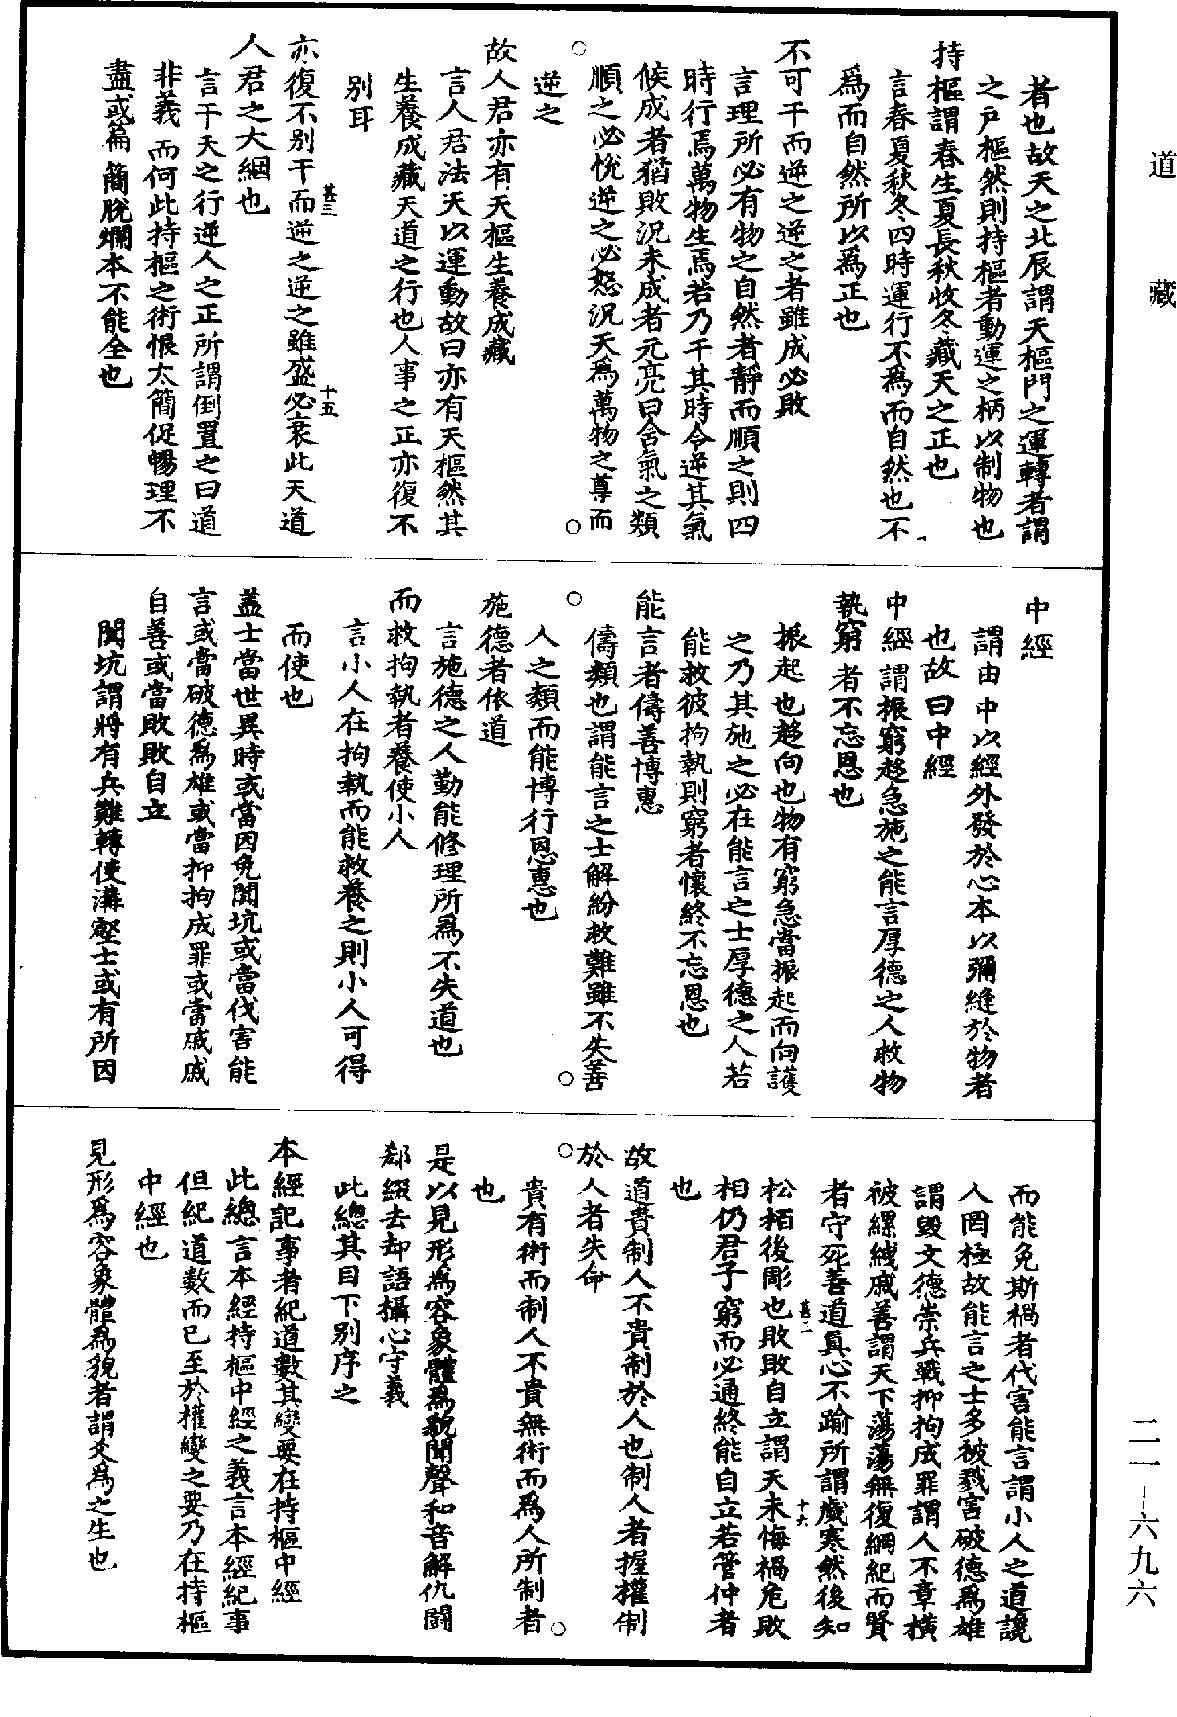 道藏
者也故天之北辰謂天樞門之運轉者謂
之戶樞然則持樞者動運之柄以制物也
持樞謂春生夏長秋收冬藏天之正也
言春夏秋冬四時運行不爲而自然也不
爲而自然所以爲正也
不可干而逆之逆之者雖成必敗
言理所必有物之自然者靜而順之則四
時行焉萬物生焉若乃干其時令逆其氣
候成者猶敗況未成者元亮曰含氣之類
順之必悅逆之必怒況天爲萬物之尊而
逆之
故人君亦有天樞生養成藏
言人君法天以運動故曰亦有天樞然其
生養成藏天道之行也人事之正亦復不
別耳
亦復不別干而逆之逆之雖盛必衰此天道
甚三
十五
人君之大綱也
言干天之行逆人之正所謂倒置之曰道
非義而何此持樞之術恨太簡促暢理不
盡或篇簡脫爛本不能全也
中經
謂由中以經外發於心本以彌縫於物者
也故曰中經
中經謂振窮趍急施之能言厚德之人救物
執窮者不忘恩也
振起也趍向也物有窮急當振起而向護
之乃其施之必在能言之士厚德之人若
能救彼拘執則窮者懷終不忘恩也
能言者儔善博惠
儔類也謂能言之士解紛救難雖不失善
人之類而能博行恩惠也
施德者依道
言施德之人勤能修理所爲不失道也
而救拘執者養使小人
言小人在拘執而能救養之則小人可得
而使也
盖士當世異時或當因免闐坑或當伐害能
言或當破德爲雄或當抑拘成罪或當戚戚
自善或當敗敗自立
闐坑謂將有兵難轉使溝壑士或有所因
而能免斯禍者代害能言謂小人之道讒
人罔極故能言之士多被戮害破德爲雄
謂毀文德崇兵戰抑拘成罪謂人不章橫
被縲絏戚善謂天下蕩蕩無復綱紀而賢
者守死善道真心不踰所謂歲寒然後知
松栢後彫也敗敗自立謂天未悔禍危敗
甚二
十六
相仍君子窮而必通終能自立若管仲者
也
故道貴制人不貴制於人也制人者握權制
於人者失命
貴有術而制人不貴無術而爲人所制者
也
是以見形爲容象體爲貌聞聲和音解仇鬪
郄綴去却語攝心守義
此總其目下別序之
本經記事者紀道數其變要在持樞中經
此總言本經持樞中經之義言本經紀事
但紀道數而已至於權變之要乃在持樞
中經也
見形爲容象體爲貌者謂爻爲之生也
二一—六九六